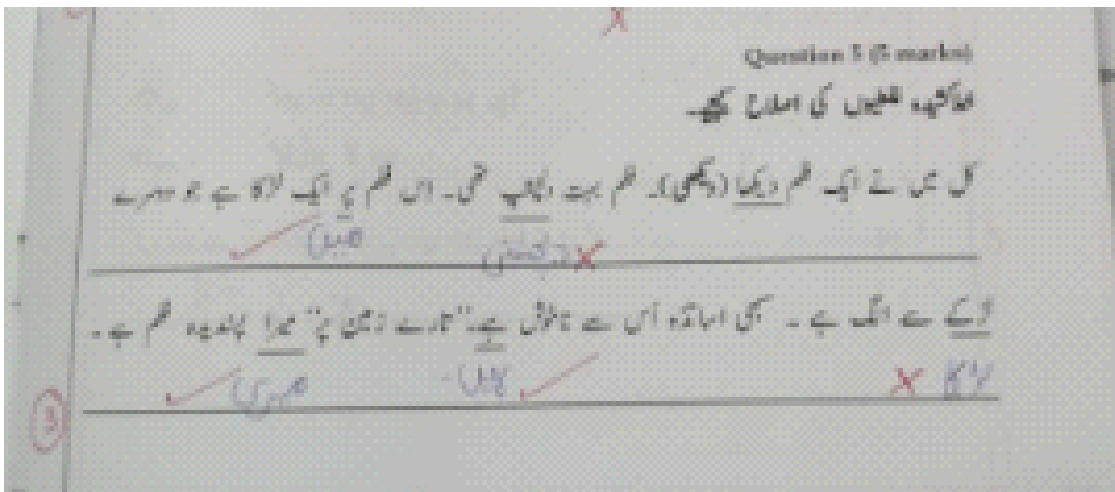 Question 5 (5 marks)
خط کشیدہ غلطیوں کی اصلاح کیجیے۔
کل میں نے ایک فلم دیکھا (دیکھی)۔ فلم بہت دلچسپ تھی۔ اس فلم پر ایک لڑکا ہے جو دوسرے
میں
لڑکے سے الگ ہے ۔ سبھی اساتذہ اُس سے ناخوش ہے۔ "تارے زمین پر" میرا پسندیدہ فلم ہے ۔
لڑکا ہیں۔ میری
3